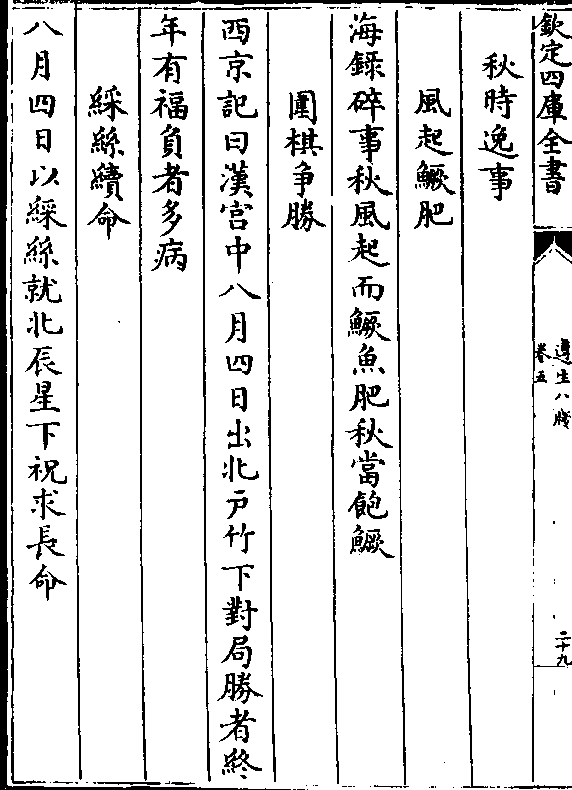 欽定四庫全書
遵生八牋
卷五
二十九
秋時逸事
風起鱖肥
海錄碎事秋風起而鱖魚肥秋當飽鱖
圍棋爭勝
西京記曰漢宮中八月四日出北戶竹下對局勝者終
年有福負者多病
綵絲續命
八月四日以綵絲就北辰星下祝求長命